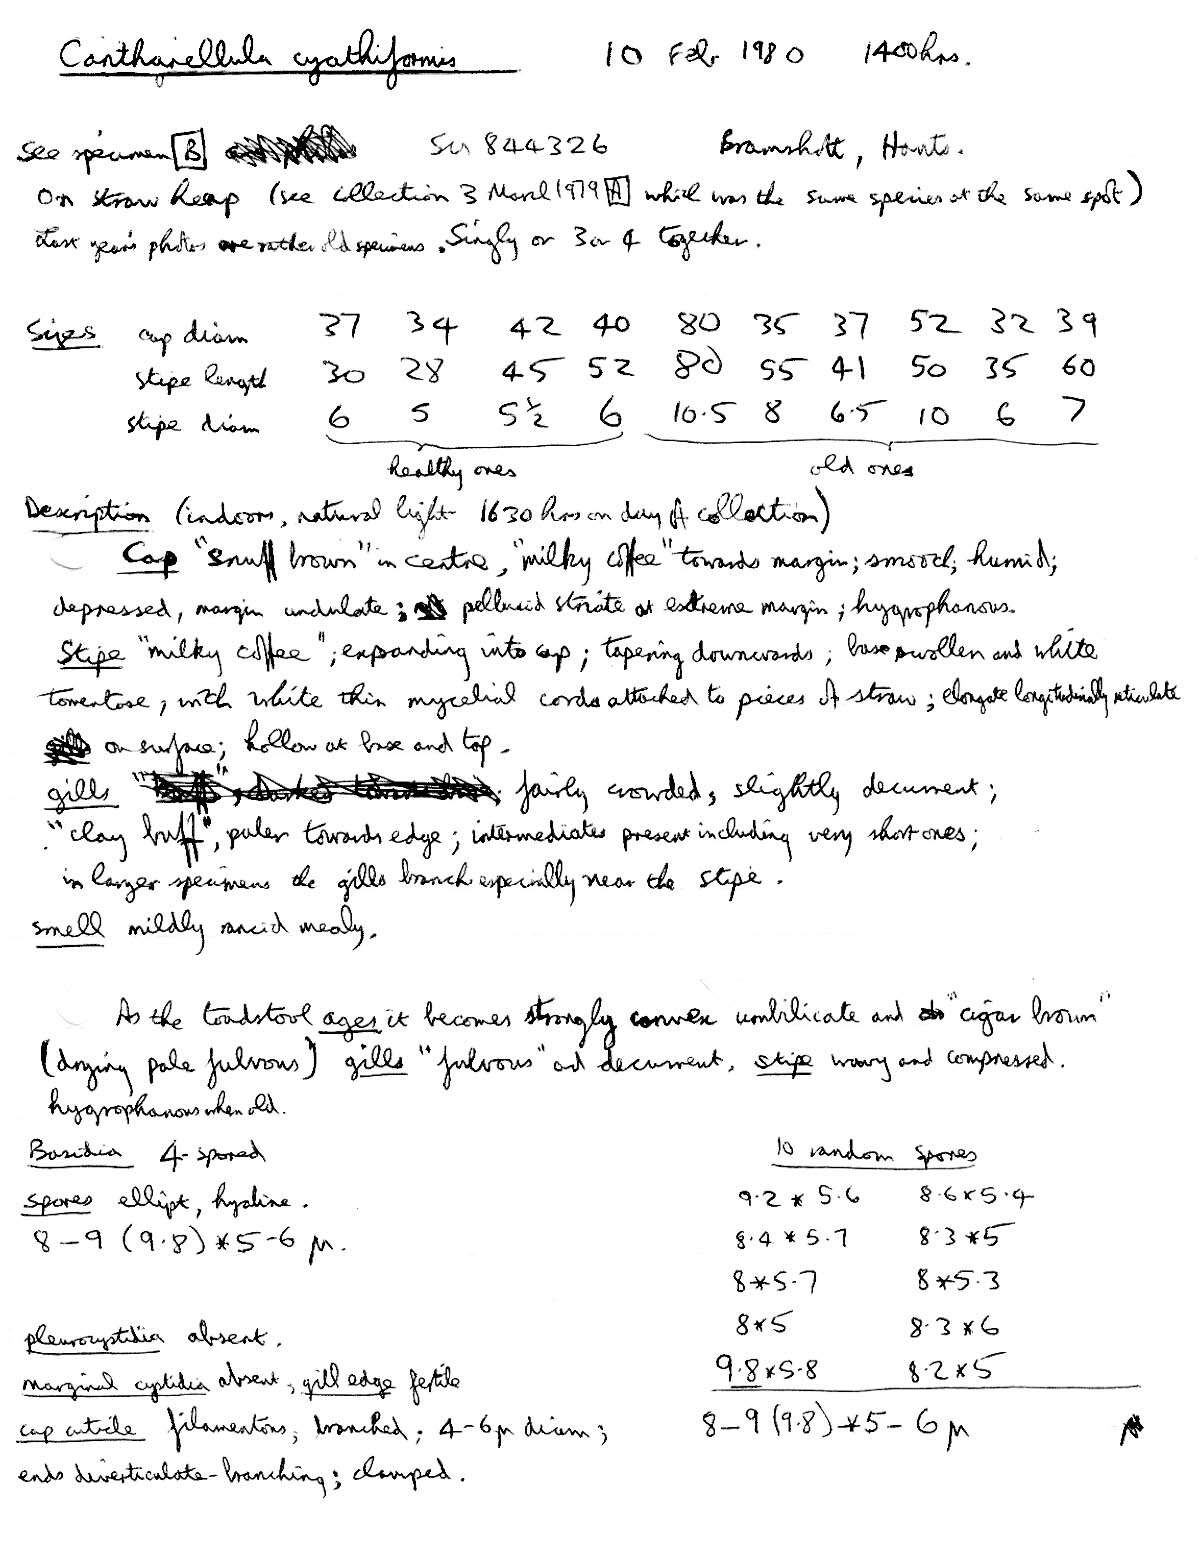 Cantharellula cyathiformis 10 Feb 1980 1400hrs.
See specimen B SU 844326 Bramshott, Hants.
On straw heap (see collection 3 March 1979 A which was the same species at the same spot)
Last year's photos are rather old specimens. Singly or 3 or 4 together.
Sizes cap diam 37 34 42 40 80 35 37 52 32 39
stipe length 30 28 45 52 80 55 41 50 35 60
stipe diam 6 5 5½ 6 10.5 8 6.5 10 6 7
healthy ones old ones
Description (indoors, natural light 1630 hrs on day of collection)
Cap "snuff brown" in centre, "milky coffee" towards margin; smooth; humid;
depressed, margin undulate; pellucid striate at extreme margin; hygrophanous.
Stipe "milky coffee"; expanding into cap; tapering downwards; base swollen and white
tomentose, with white thin mycelial cords attached to pieces of straw; elongate longitudinally reticulate
on surface; hollow at base and top.
gills fairly crowded, slightly decurrent;
"clay buff", paler towards edge; intermediates present including very short ones;
in larger specimens the gills branch especially near the stipe.
smell mildly rancid mealy.
As the toadstool ages it becomes strongly convex umbilicate and "cigar brown"
(drying pale fulvous) gills "fulvous" and decurrent, stipe wavy and compressed.
hygrophanous when old.
Basidia 4-spored
spores ellipt, hyaline.
8-9 (9.8) * 5-6 µ.
10 random spores
9.2 * 5.6 8.6 x 5.4
8.4 * 5.7 8.3 * 5
8 * 5.7 8 * 5.3
8 * 5 8.3 * 6
9.8 * 5.8 8.2 * 5
8-9 (9.8) * 5-6 µ
pleurocystidia absent.
marginal cystidia absent, gill edge fertile
cap cuticle filamentous, branched; 4-6µ diam;
ends diverticulate-branching; clamped.